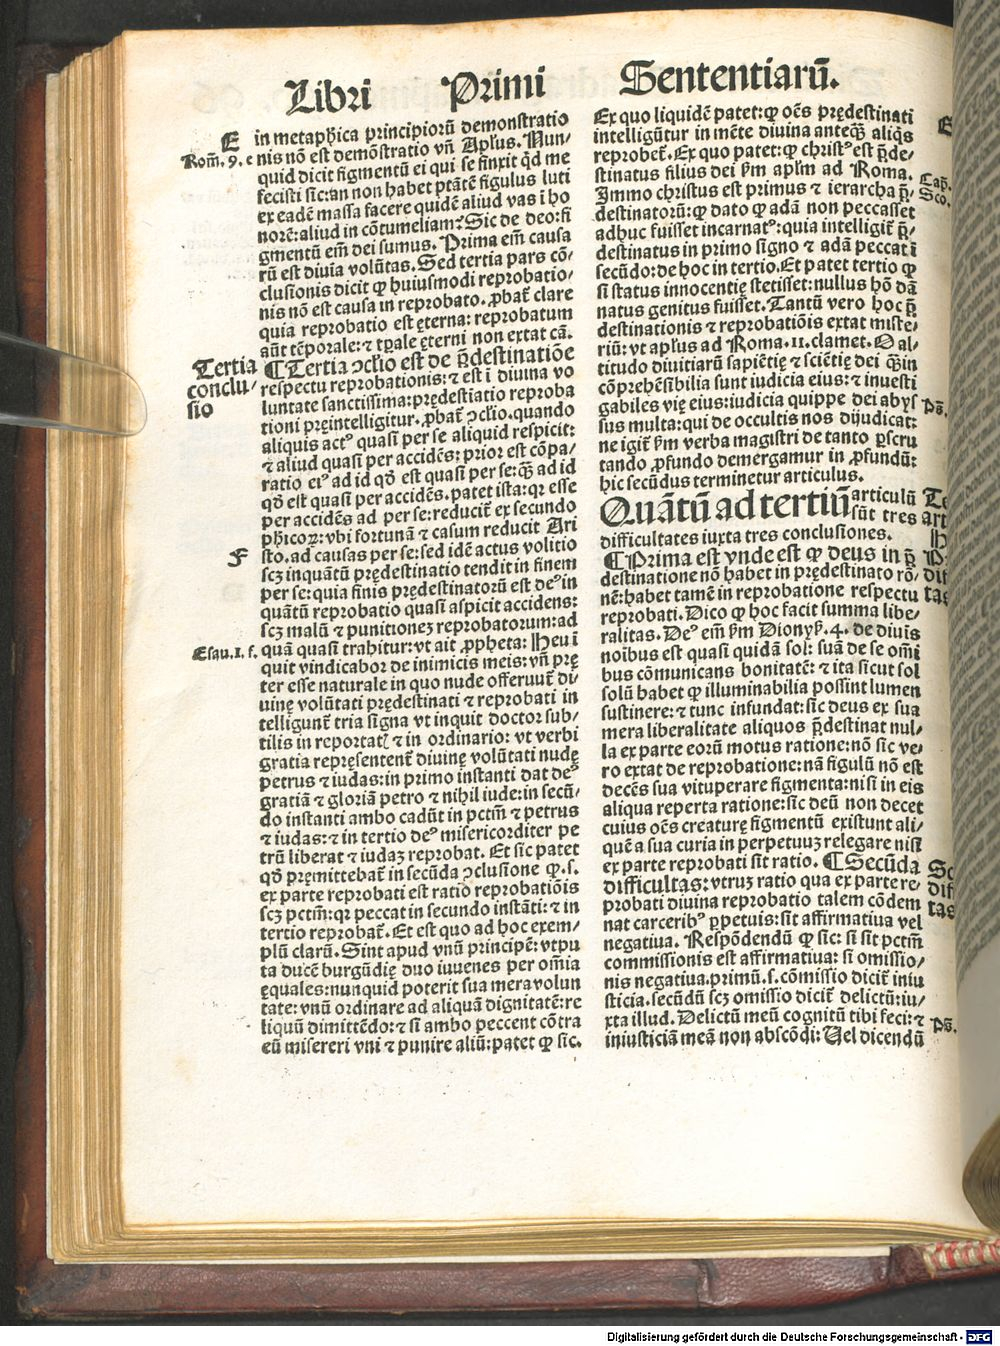 Libri Primi Sententiarū.
E
Rom̄. 9. e
in metaph̄ica principiorū demonstratio
nis nō est demōstratio vn̄ Apl̄us. Nun-
quid dicit figmentū ei qui se finxit q̄d me
fecisti sic: an non habet ptātē figulus luti
ex eadē massa facere quidē aliud vas ī ho
norē: aliud in cōtumeliam? Sic de deo: fi
gmentū em̄ dei sumus. Prima em̄ causa
rū est diuīa volūtas. Sed tertia pars cō-
clusionis dicit ꝙ huiusmodi reprobatio-
nis nō est causa in reprobato. ꝓbat̄ clare
quia reprobatio est ęterna: reprobatum
aūt tēporale: ⁊ tp̄ale ęterni non extat cā.
Tertia
conclu-
sio
¶ Tertia ↄclio est de p̄destinatiōe
respectu reprobationis: ⁊ est ī diuina vo
luntate sanctissima: prędestiatio reproba
tioni pręintelligitur. ꝓbat̄ ↄclio. quando
aliquis actꝰ quasi per se aliquid respicit:
⁊ aliud quasi per accidēs: prior est cōpa-
ratio eiꝰ ad id qd̄ est quasi per se: q̄ꝫ ad id
qd̄ est quasi per accidēs. patet ista: qꝛ esse
per accidēs ad per se: reducit̄ ex secundo
ph̄icoꝝ: vbi fortunā ⁊ casum reducit Ari
F
sto. ad causas per se: sed idē actus volitio
scꝫ inquātū prędestinatio tendit in finem
per se: quia finis prędestinatorū est deꝰ: in
quātū reprobatio quasi aspicit accidens:
scꝫ malū ⁊ punitioneꝫ reprobatorum: ad
Esau. 1. f.
quā quasi trahitur: vt ait ꝓpheta: Heu ī
quit vindicabor de inimicis meis: vn̄ prę
ter esse naturale in quo nude offeruut̄ di-
uinę volūtati prędestinati ⁊ reprobati in
telligunt̄ tria signa vt inquit doctor sub-
tilis in reportatꝭ ⁊ in ordinario: vt verbi
gratia repręsentent̄ diuinę volūtati nudę
petrus ⁊ iudas: in primo instanti dat deꝰ
gratiā ⁊ gloriā petro ⁊ nihil iude: in secū-
do instanti ambo cadūt in pctm̄ ⁊ petrus
⁊ iudas: ⁊ in tertio deꝰ misericorditer pe
trū liberat ⁊ iudaꝫ reprobat. Et sic patet
qd̄ pręmittebat̄ in secūda ↄclusione ꝙ .s.
ex parte reprobati est ratio reprobatiōis
scꝫ pctm̄: qꝛ peccat in secundo instāti: ⁊ in
tertio reprobat̄. Et est quo ad hoc exem-
plū clarū. Sint apud vnū principē: vtpu
ta ducē burgūdię duo iuuenes per om̄ia
ęquales: nunquid poterit sua mera volun
tate: vnū ordinare ad aliquā dignitatē: re
liquū dimittēdo: ⁊ si ambo peccent cōtra
eū misereri vni ⁊ punire aliū: patet ꝙ sic.
Ex quo liquidē patet: ꝙ oēs prędestinati
intelligūtur in mēte diuina anteq̄ꝫ aliq̄s
reprobet̄. Ex quo patet: ꝙ christꝰ est p̄de-
stinatus filius dei ẜm apl̄m ad Roma.
Immo christus est primus ⁊ ierarcha p̄-
destinatorū: ꝙ dato ꝙ adā non peccasset
adhuc fuisset incarnatꝰ: quia intelligit̄ p̄-
destinatus in primo signo ⁊ adā peccat ī
secūdo: de hoc in tertio. Et patet tertio ꝙ
si status innocentię stetisset: nullus hō dā
natus genitus fuisset. Tantū vero hoc p̄
destinationis ⁊ reprobatiōis extat miste-
riū: vt apl̄us ad Roma. 11. clamet. O al-
titudo diuitiarū sapiētię ⁊ sciētię dei q̄ꝫin
cōprehēsibilia sunt iudicia eius: ⁊ inuesti
gabiles vię eius: iudicia quippe dei abys
sus multa: qui de occultis nos dijudicat:
ne igit̄ ẜm verba magistri de tanto ꝑscru
tando ꝓfundo demergamur in ꝓfundū:
hic secūdus terminetur articulus.
Quātū ad tertiū articulū
sūt tres
difficultates iuxta tres conclusiones.
¶ Prima est vnde est ꝙ deus in p̄
destinatione nō habet in prędestinato rō-
nē: habet tamē in reprobatione respectu
reprobati. Dico ꝙ hoc facit summa libe-
ralitas. Deꝰ em̄ ẜm Dionyẜ. 4. de diuīs
noībus est quasi quidā sol: suā de se om̄i
bus cōmunicans bonitatē: ⁊ ita sicut sol
solū habet ꝙ illuminabilia possint lumen
sustinere: ⁊ tunc infundat: sic deus ex sua
mera liberalitate aliquos p̄destinat nul-
la ex parte eorū motus ratione: nō sic ve-
ro extat de reprobatione: nā figulū nō est
decēs sua vituperare figmenta: nisi in eis
aliqua reperta ratione: sic deū non decet
cuius oēs creaturę figmentū existunt ali-
quē a sua curia in perpetuuꝫ relegare nisi
ex parte reprobati sit ratio. ¶ Secūda
difficultas: vtruꝫ ratio qua ex parte re-
probati diuina reprobatio talem cōdem
nat carceribꝰ ꝑpetuis: sit affirmatiua vel
negatiua. Respōdendū ꝙ sic: si sit pctm̄
commissionis est affirmatiua: si omissio-
nis negatiua. primū .s. cōmissio dicit̄ iniu
sticia. secūdū scꝫ omissio dicit̄ delictū: iu-
xta illud. Delictū meū cognitū tibi feci: ⁊
iniusticiā meā non abscōdi: Uel dicendū
Cap̄.
Sco.
Ps̄.
Ps̄.
Digitalisierung gefördert durch die Deutsche Forschungsgemeinschaft - DFG